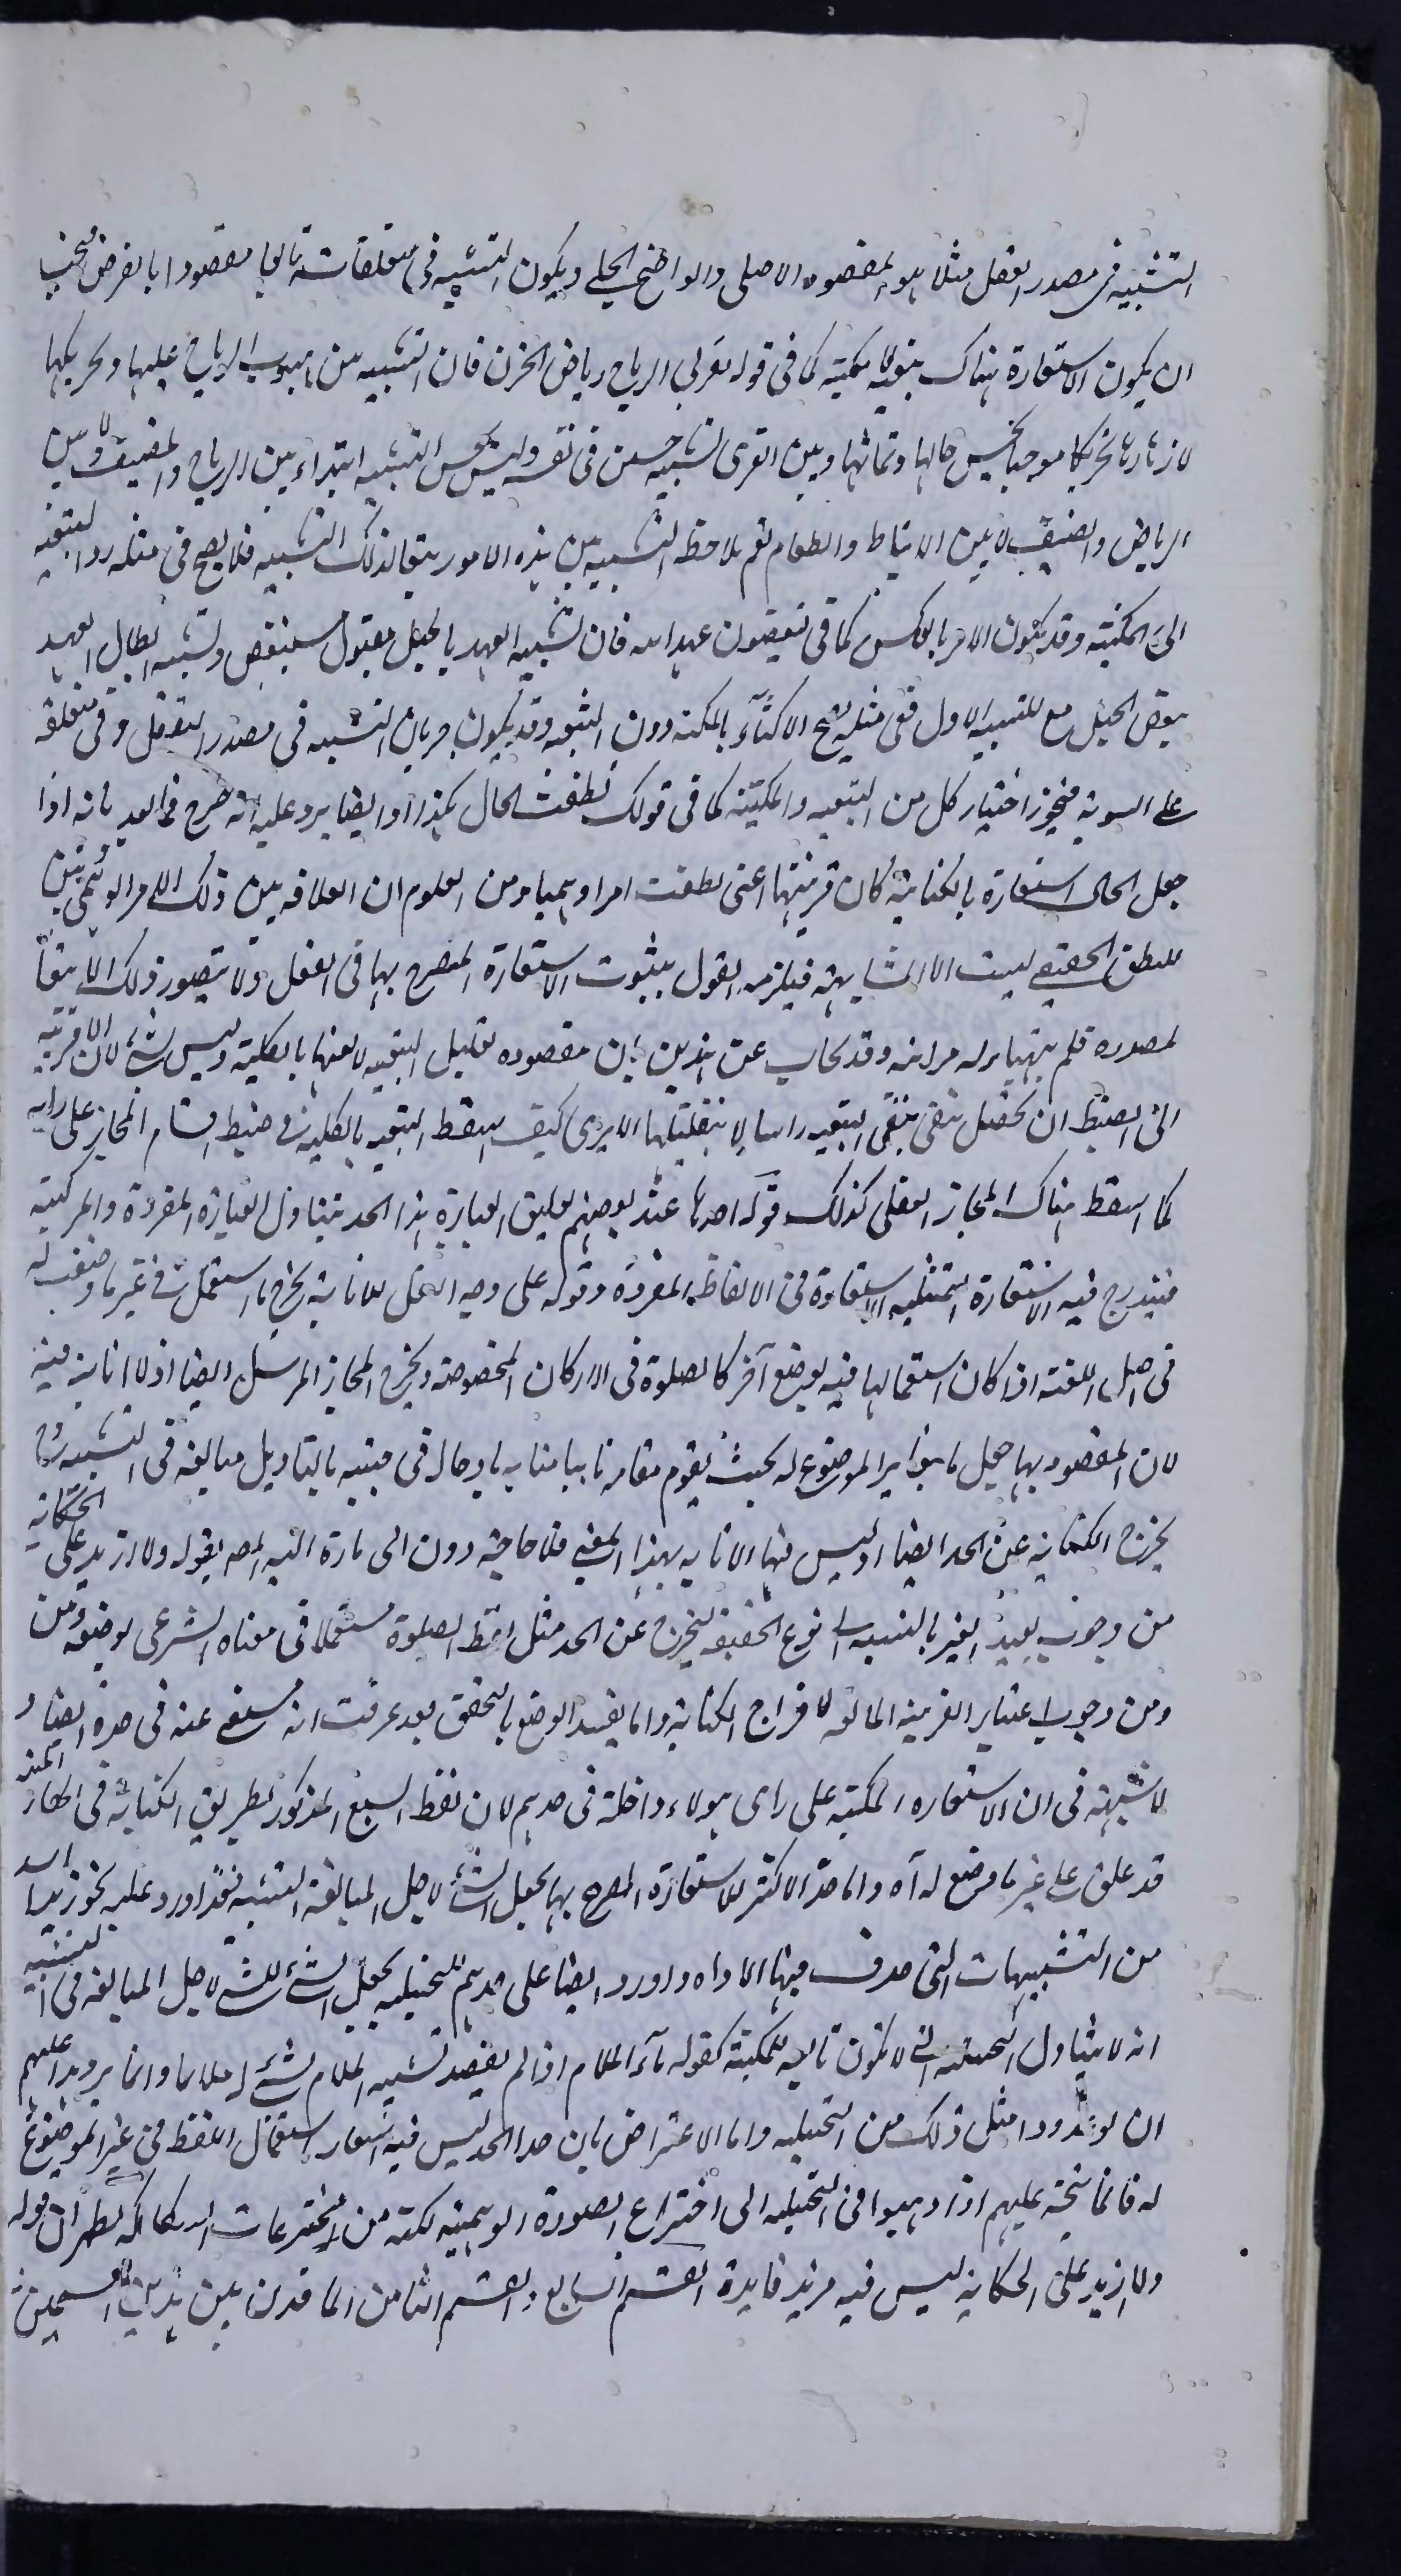 التشبيه فى مصدر الفعل مثلا هو المقصود الاصلى والواضح الجلى ويكون التشبيه فى متعلقاته تابعا مقصودا بالعرض فيجب
ان يكون الاستعارة هناك تبعية لا مكنية كما فى قوله تقرى الرياح رياض الحزن فان التشبيه بين هبوب الرياح عليها وتحريكها
لازهارها تحريكا موجبا لحسن حالها ونمائها وبين القرى تشبيه حسن فى نفسه وليس يحسن التشبيه ابتداء بين الرياح والمضيف ولا بين
الرياض والضيف ولا بين الانبساط والطعام نعم يلاحظ التشبيه بين هذه الامور تبعا لذلك التشبيه فلا يصح فى مثله رد التبعية
الى المكنية وقد يكون الامر بالعكس كما فى ينقضون عهد الله فان تشبيه العهد بالحبل مقبول مستفيض وتشبيه ابطال العهد
بنقض الحبل مع للتشبيه الاول ففى مثله يصح الاكتفاء بالمكنية دون التبعية وقد يكون جريان التشبيه فى مصدر الفعل وفى متعلقه
على السوية فيجوز اختيار كل من التبعية والمكنية كما فى قولك نطقت الحال بكذا وايضا يرد عليه انه صرح فيما بعد بانه اذا
جعل الحال استعارة بالكناية كان قرينتها اعنى نطقت امرا وهميا ومن المعلوم ان العلاقة بين ذلك الامر الوهمى وبين
للنطق الحقيقى ليست الا المشابهة فيلزمه القول بثبوت الاستعارة المصرح بها فى الفعل ولا يتصور ذلك الا تبعا
لمصدره فلم يتهيأ له مرامه وقد يجاب عن هذين بان مقصوده تقليل التبعية لا نفيها بالكلية وليس بشئ لان الاقربية
الى الضبط ان تحصل بنفى التبعية راسا لا بتقليلها الا يرى كيف اسقط التبعية بالكلية فى ضبط اقسام المجاز على رايه
كما اسقط هناك المجاز العقلى كذلك قوله احدها عند بعضهم تعليق العبارة هذا الحد يتناول العبارة المفردة والمركبة
فيندرج فيه الاستعارة التمثيلية والاستعارة فى الالفاظ المفردة وقوله على وجه النقل للابانة يخرج ما استعمل فى غير ما وضعت له
فى اصل اللغة اذا كان استعمالها فيه بوضع آخر كالصلوة فى الاركان المخصوصة ويخرج المجاز المرسل ايضا اذ لا ابانة فيه
لان المقصود بها جعل ما هو غير الموضوع له بحيث يقوم مقامه نائبا منابه داخلا فى جنسه بالتاويل مبالغة فى التشبيه
يخرج الكناية عن الحد ايضا اذ ليس فيها الابانة بهذا المعنى فلا حاجة دون الى ما رده اليه المصـ بقوله ولا ازيد على الحكاية
من وجوب تقييد الغير بالنسبة الى نوع الحقيقة ليخرج عن الحد مثل لفظ الصلوة مستعملا فى معناه الشرعى بوضعه ومن
ومن وجوب اعتبار القرينة المانعة لاخراج الكناية واما تقييد الوضع بالتحقق فقد عرفت انه مستغنى عنه فى حده ايضا و
لا شبهة فى ان الاستعارة المكنية على راى هولاء داخلة فى حدهم لان لفظ السبع المذكور بطريق الكناية فى اظفار المنية
قد علق على غير ما وضع له آه واما حد الاكثر للاستعارة المصرح بها بجعل الشئ الشئ لاجل المبالغة فى التشبيه فقد اورد عليه نحو زيد اسد
من التشبيهات التى حذف فيها الاداة واورد ايضا على حدهم للتخييلية بجعل الشئ للشئ لاجل المبالغة فى التشبيه
انه لا يتناول التخييلية التى لا تكون تابعة للمكنية كقوله ماء الملام اذا لم يقصد تشبيه الملام بشئ له ملائما وانما يرد هذا عليهم
ان لو عدوا مثل ذلك من التخييلية واما الاعتراض بان هذا الحد ليس فيه اشعار باستعمال اللفظ فى غير الموضوع
له فانما يتجه عليهم اذا ذهبوا فى التخييلية الى اختراع الصورة الوهمية لكنه من مخترعات السكاكى كما يظهر ان قوله
ولا ازيد على الحكاية ليس فيه مزيد فايدة القسم السابع والقسم الثامن انما قدرت بين هذين القسمين